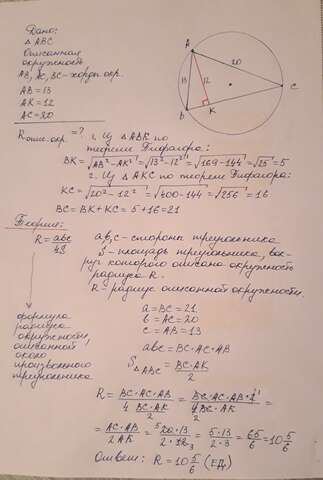 Дано:
△ ABC
Описанная
окружность
AB, AC, BC - хорды окр.
AB = 13
AK = 12
AC = 20
A
20
13
12
B
K
C
R опис. окр. = ?
1. Из △ABK по
теореме Пифагора:
BK = √AB² - AK² = √13² - 12² = √169 - 144 = √25 = 5
2. Из △AKC по теореме Пифагора:
KC = √20² - 12² = √400 - 144 = √256 = 16
BC = BK + KC = 5 + 16 = 21
Теория:
R = abc/4S
a, b, c - стороны треугольника
S - площадь треугольника, вок-
руг которого описана окружность
радиуса R.
R - радиус описанной окружности.
формула
радиуса
окружности,
описанной
около
произвольного
треугольника
a = BC = 21
b = AC = 20
c = AB = 13
abc = BC·AC·AB
S△ABC = BC·AK/2
R = BC·AC·AB / 4 BC·AK/2 = BC·AC·AB·2 / 4BC·AK =
= AC·AB / 2AK = 20·13 / 2·12 = 5·13 / 2·3 = 65/6 = 10 5/6
Ответ: R = 10 5/6 (ЕД.)